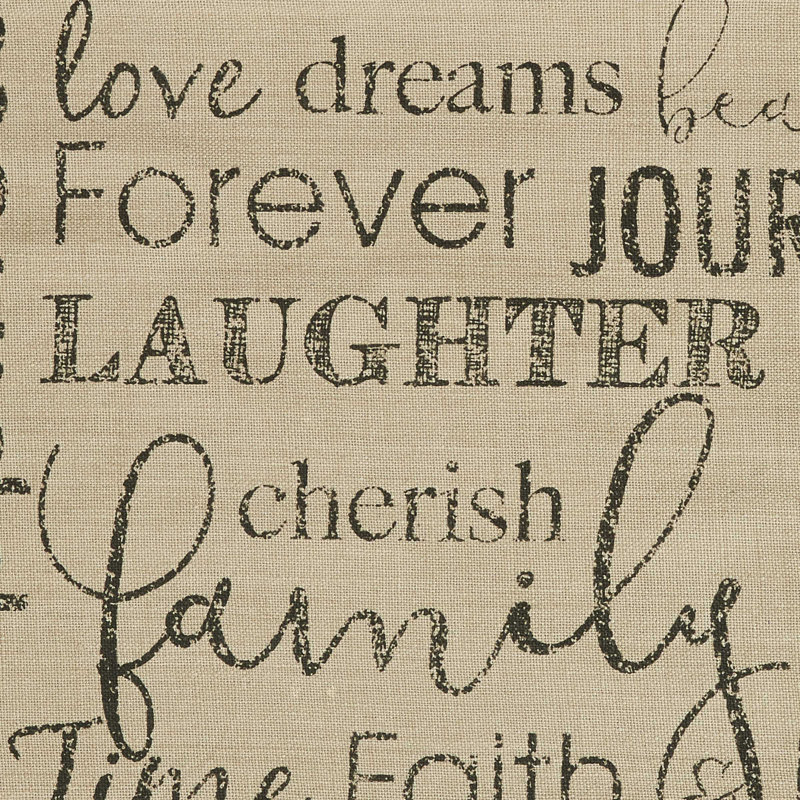 love dreams bea
Forever JOUR
LAUGHTER
cherish
family
Time Faith &